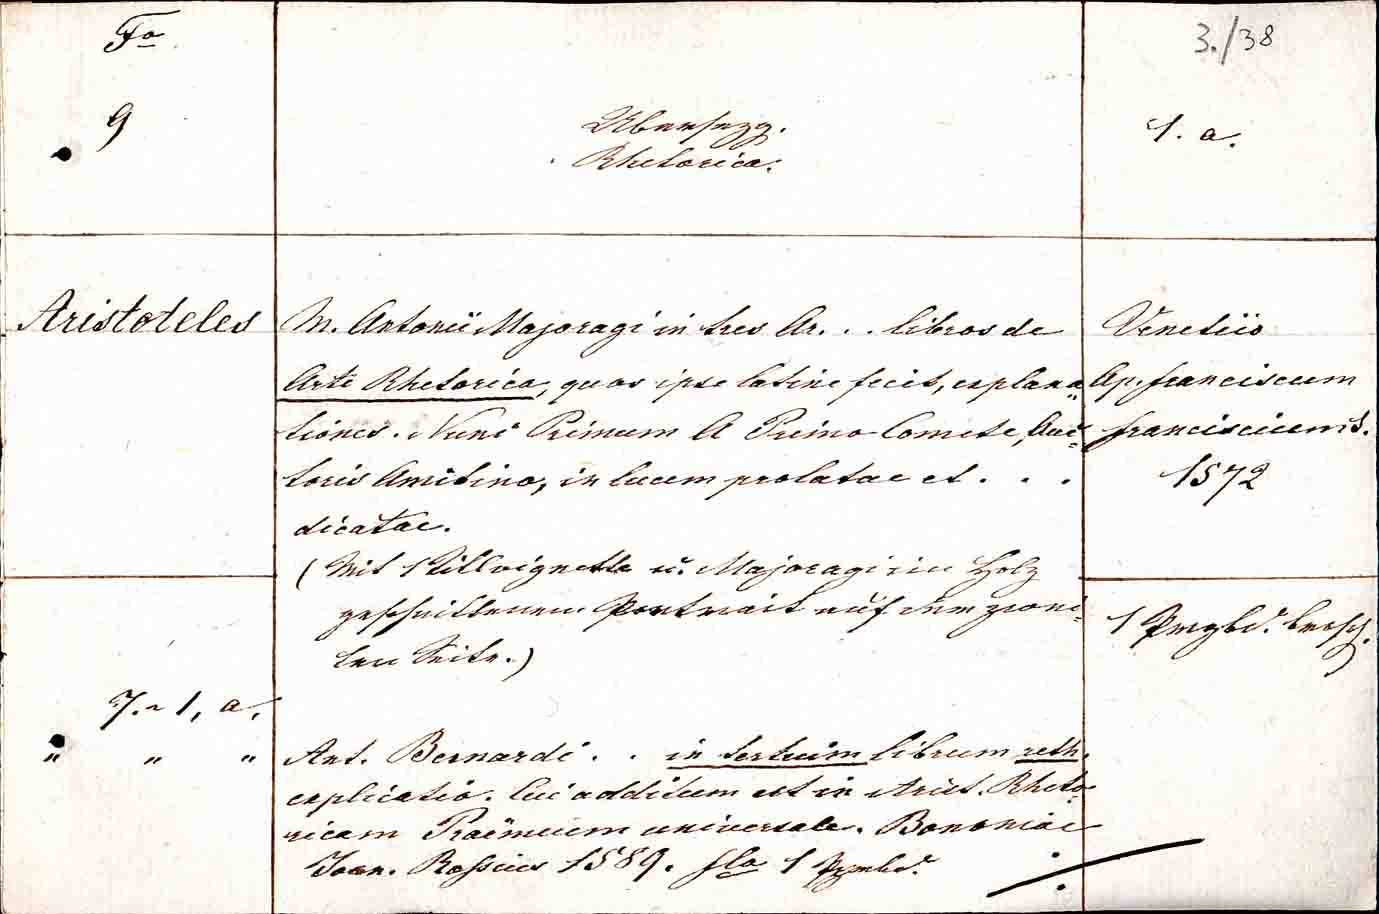 Fo
3./38
9
Übersezg.
Rhetorica.
1. a.
Aristoteles
M. Antonii Majoragi in tres Ar. . . libros de
Arte Rhetorica, quos ipse latine fecit, explana„
tiones. Nunc Primum A Primo Comite, Auc„
toris Amitino, in lucem prolatae et . . .
dicatae.
(Mit 1 Titlvignette u. Majoragi in Holz
geschnittenem Portrait auf der zwei„
ten Seite.)
Venetiis
Ap. Franciscum
Franciscium S.
1572
1 Prgbd. besch.
7.~1, a.
„ „ „
Ant. Bernardi . . in tertium librum reth.
explicatio. Cui additum est in Arist. Rheto„
ricam Proëmium universale. Bononiae
Joan. Rossius 1589. flo 1 Pgmbd.